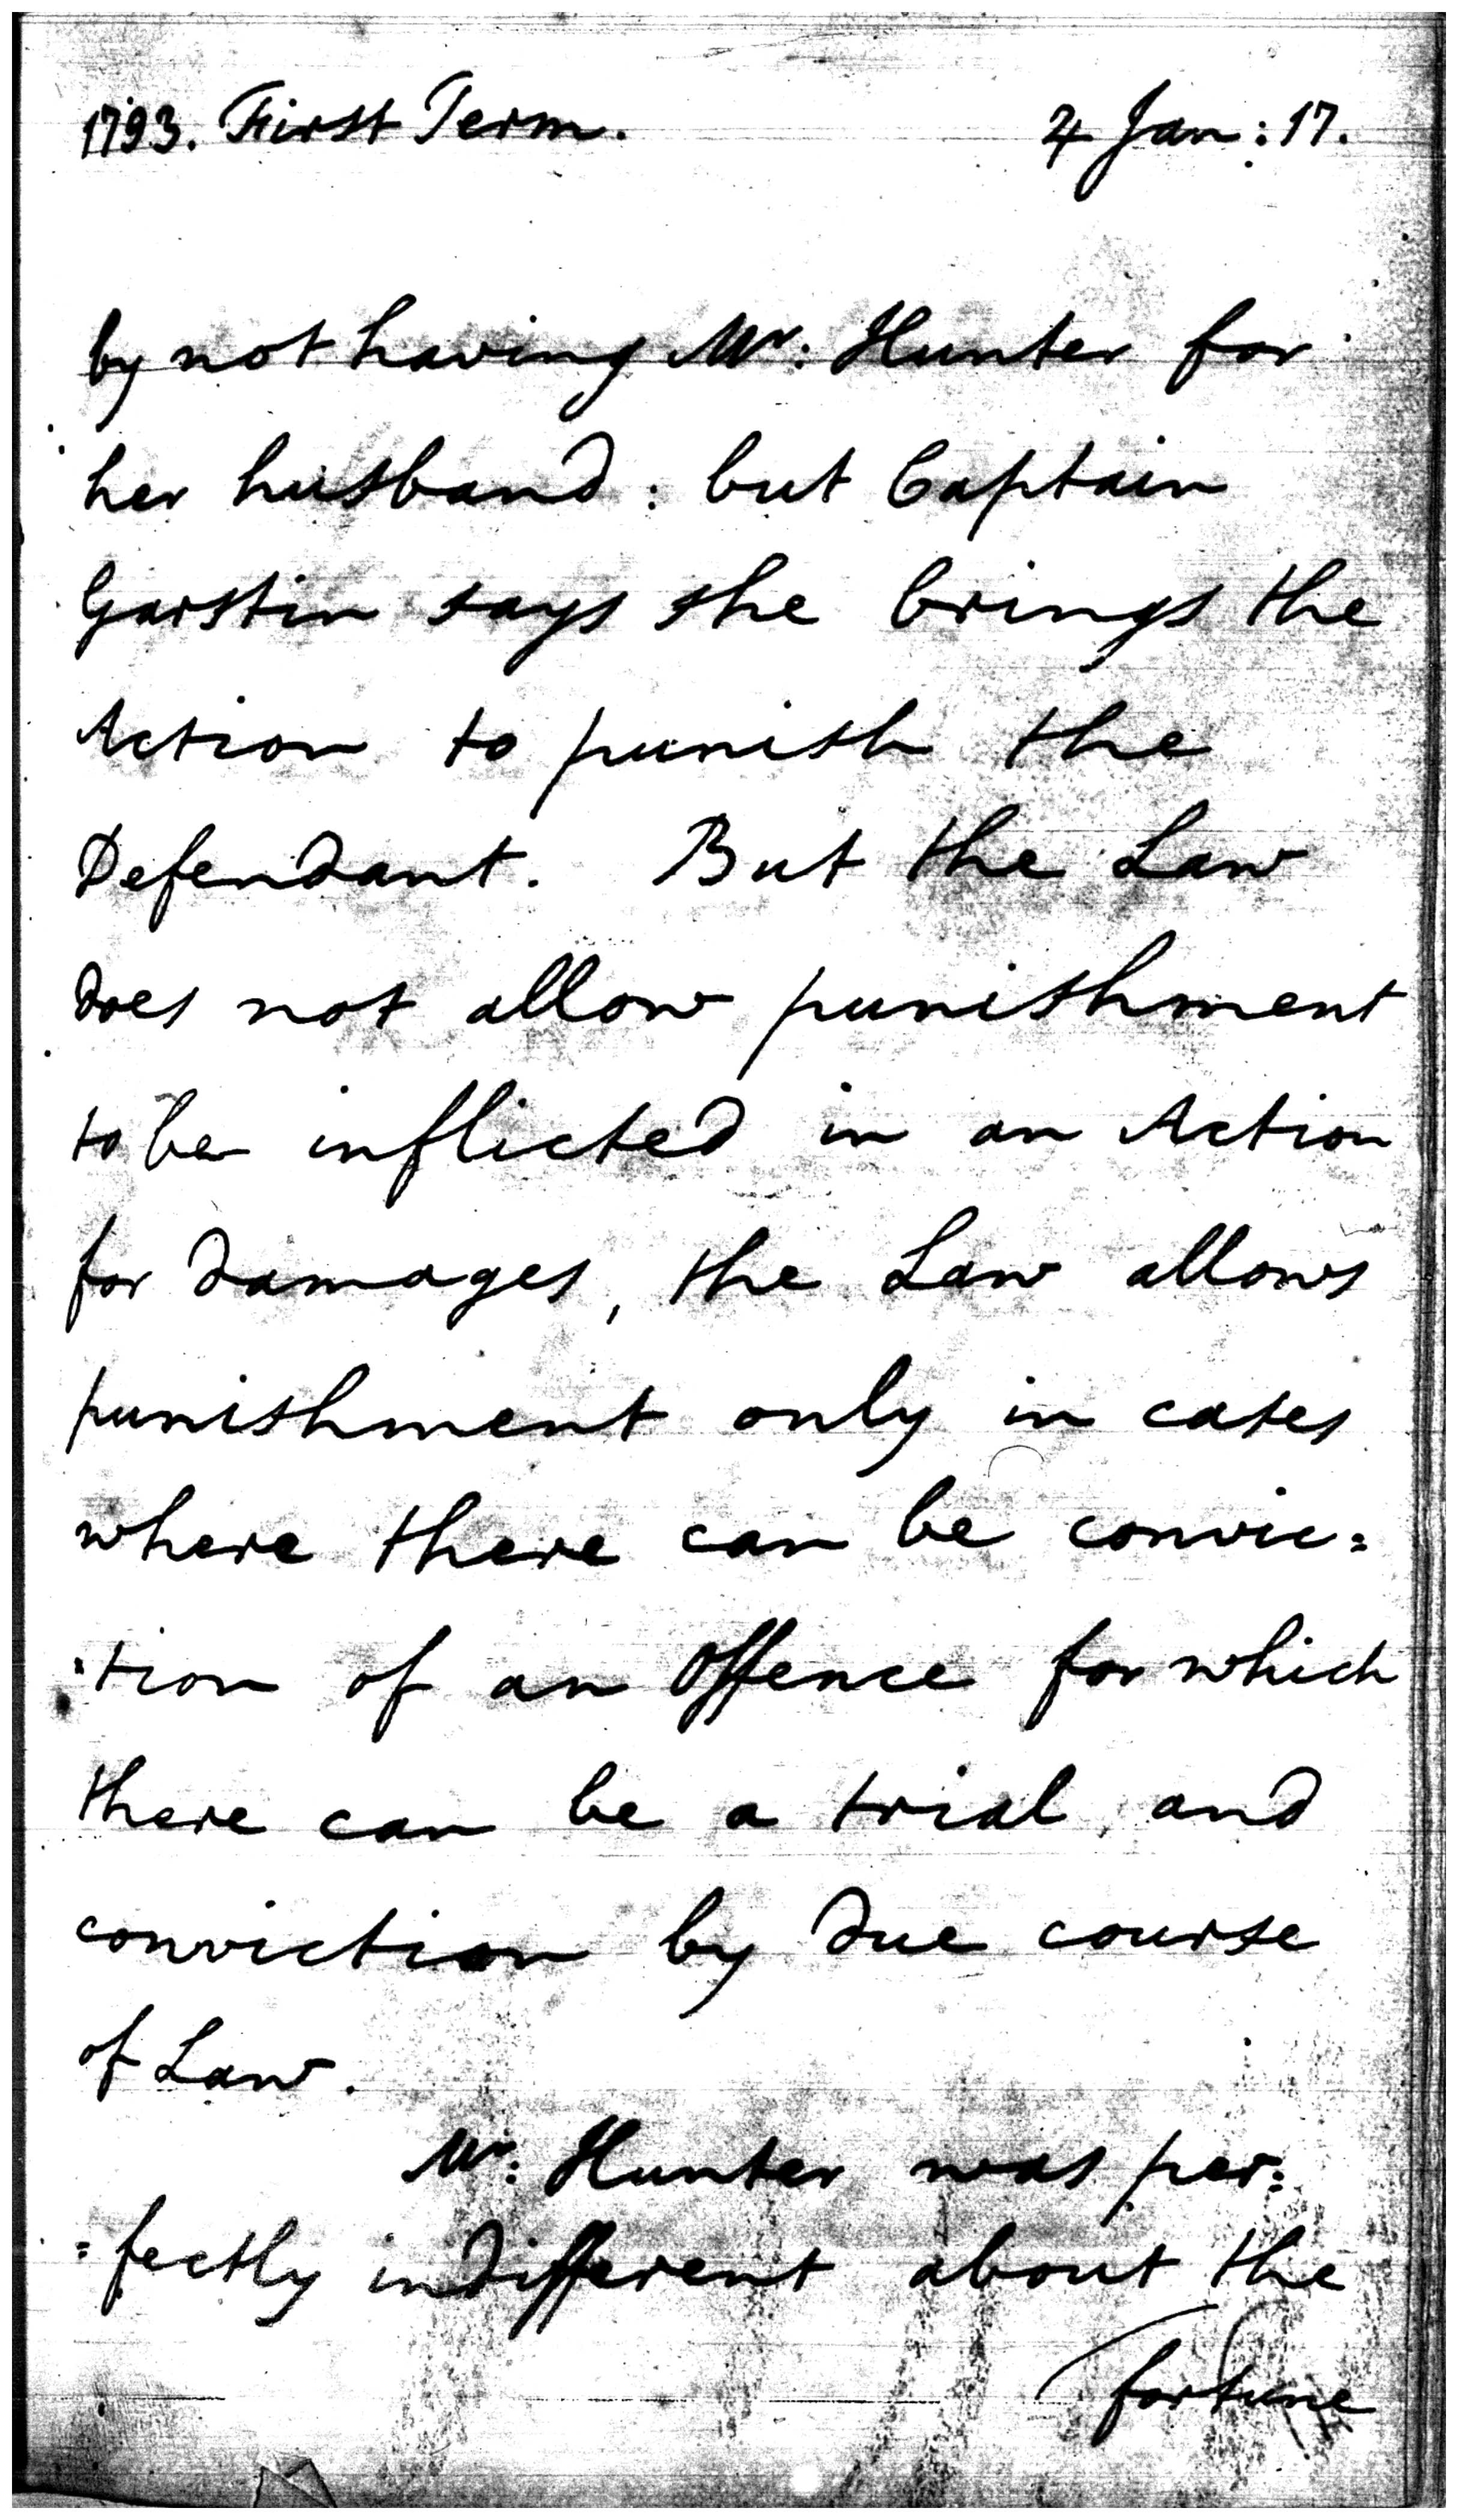 1793. First Term. 4 Jan: 17.
by not having Mr: Hunter for
her husband: but Captain
Garstin says she brings the
Action to punish the
Defendant. But the Law
does not allow punishment
to be inflicted in an Action
for damages, the Law allows
punishment only in cases
where there can be convic=
=tion of an Offence for which
there can be a trial, and
conviction by due course
of Law.
Mr: Hunter was per=
=fectly indifferent about the
fortune